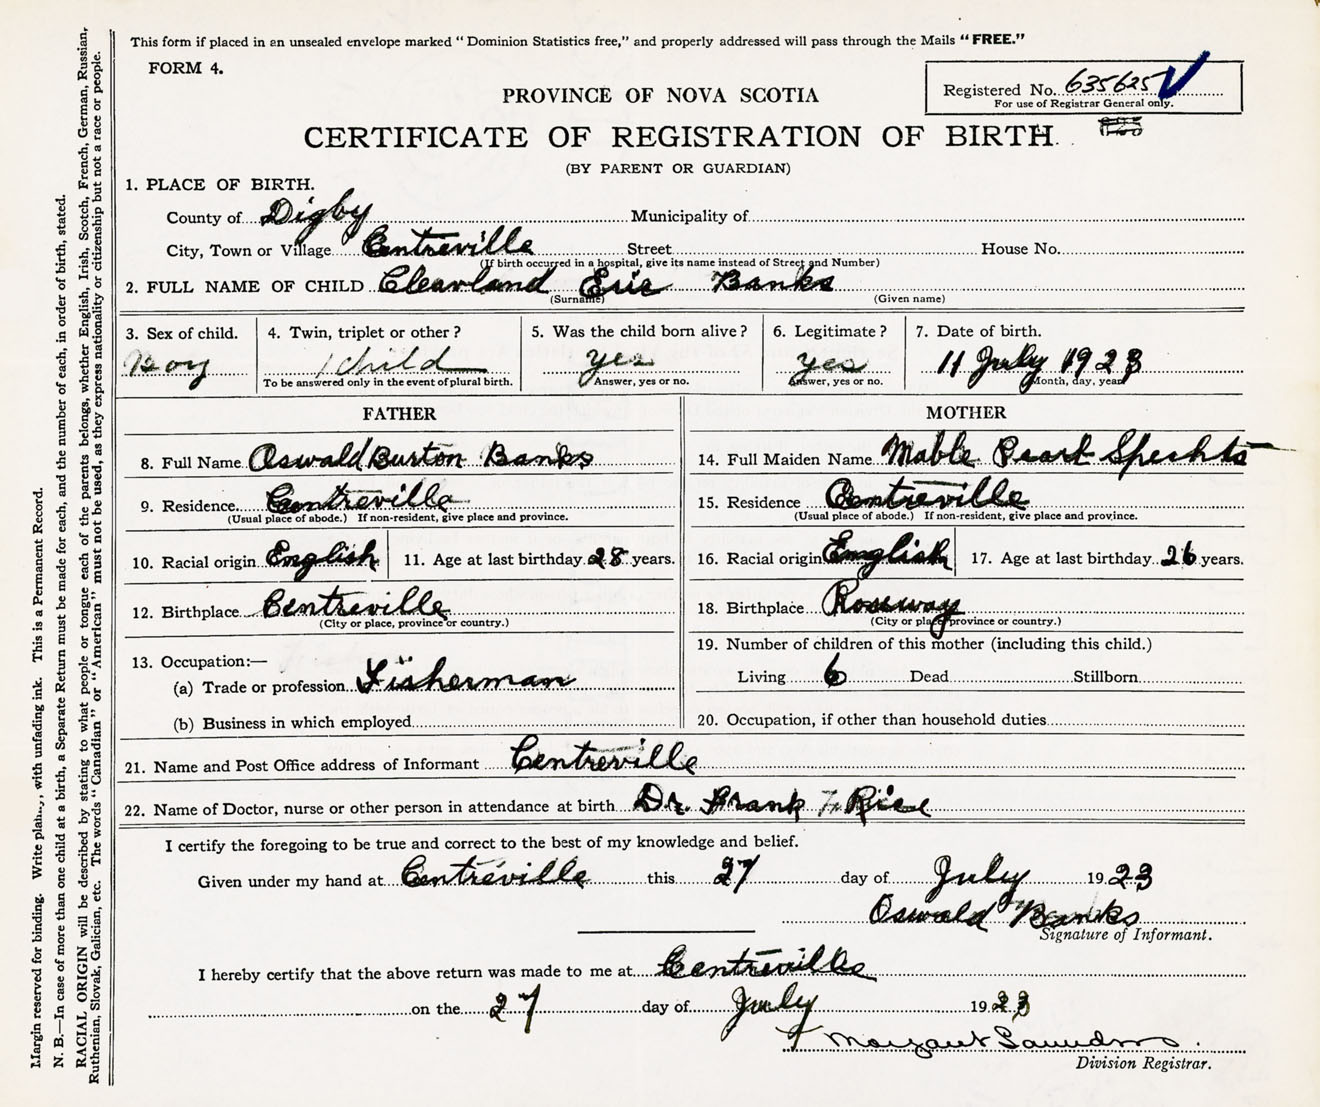 This form if placed in an unsealed envelope marked "Dominion Statistics free," and properly addressed will pass through the Mails "FREE."
FORM 4.
Registered No. 635625
For use of Registrar General only.
PROVINCE OF NOVA SCOTIA
CERTIFICATE OF REGISTRATION OF BIRTH
(BY PARENT OR GUARDIAN)
1. PLACE OF BIRTH.
County of Digby Municipality of
City, Town or Village Centreville Street House No.
(If birth occurred in a hospital, give its name instead of Street and Number)
2. FULL NAME OF CHILD Cleavland Eric Banks
(Surname) (Given name)
3. Sex of child. 4. Twin, triplet or other? 5. Was the child born alive? 6. Legitimate? 7. Date of birth.
Boy 1 child yes yes 11 July 1923
To be answered only in the event of plural birth. Answer, yes or no. Answer, yes or no. Month, day, year
FATHER
8. Full Name Oswald Burton Banks
9. Residence Centreville
(Usual place of abode.) If non-resident, give place and province.
10. Racial origin English 11. Age at last birthday 28 years.
12. Birthplace Centreville
(City or place, province or country.)
13. Occupation:—
(a) Trade or profession Fisherman
(b) Business in which employed
MOTHER
14. Full Maiden Name Mable Pearl Spechts
15. Residence Centreville
(Usual place of abode.) If non-resident, give place and province.
16. Racial origin English 17. Age at last birthday 26 years.
18. Birthplace Roseway
(City or place, province or country.)
19. Number of children of this mother (including this child.)
Living 6 Dead Stillborn
20. Occupation, if other than household duties
21. Name and Post Office address of Informant Centreville
22. Name of Doctor, nurse or other person in attendance at birth Dr. Frank Rice
I certify the foregoing to be true and correct to the best of my knowledge and belief.
Given under my hand at Centreville this 27 day of July 1923
Oswald Banks
Signature of Informant.
I hereby certify that the above return was made to me at Centreville
on the 27 day of July 1923
Margaret Saunders.
Division Registrar.
Margin reserved for binding. Write plainly, with unfading ink. This is a Permanent Record.
N. B.—In case of more than one child at a birth, a Separate Return must be made for each, and the number of each, in order of birth, stated.
RACIAL ORIGIN will be described by stating to what people or tongue each of the parents belongs, whether English, Irish, Scotch, French, German, Russian,
Ruthenian, Slovak, Galician, etc. The words "Canadian" or "American" must not be used, as they express nationality or citizenship but not a race or people.